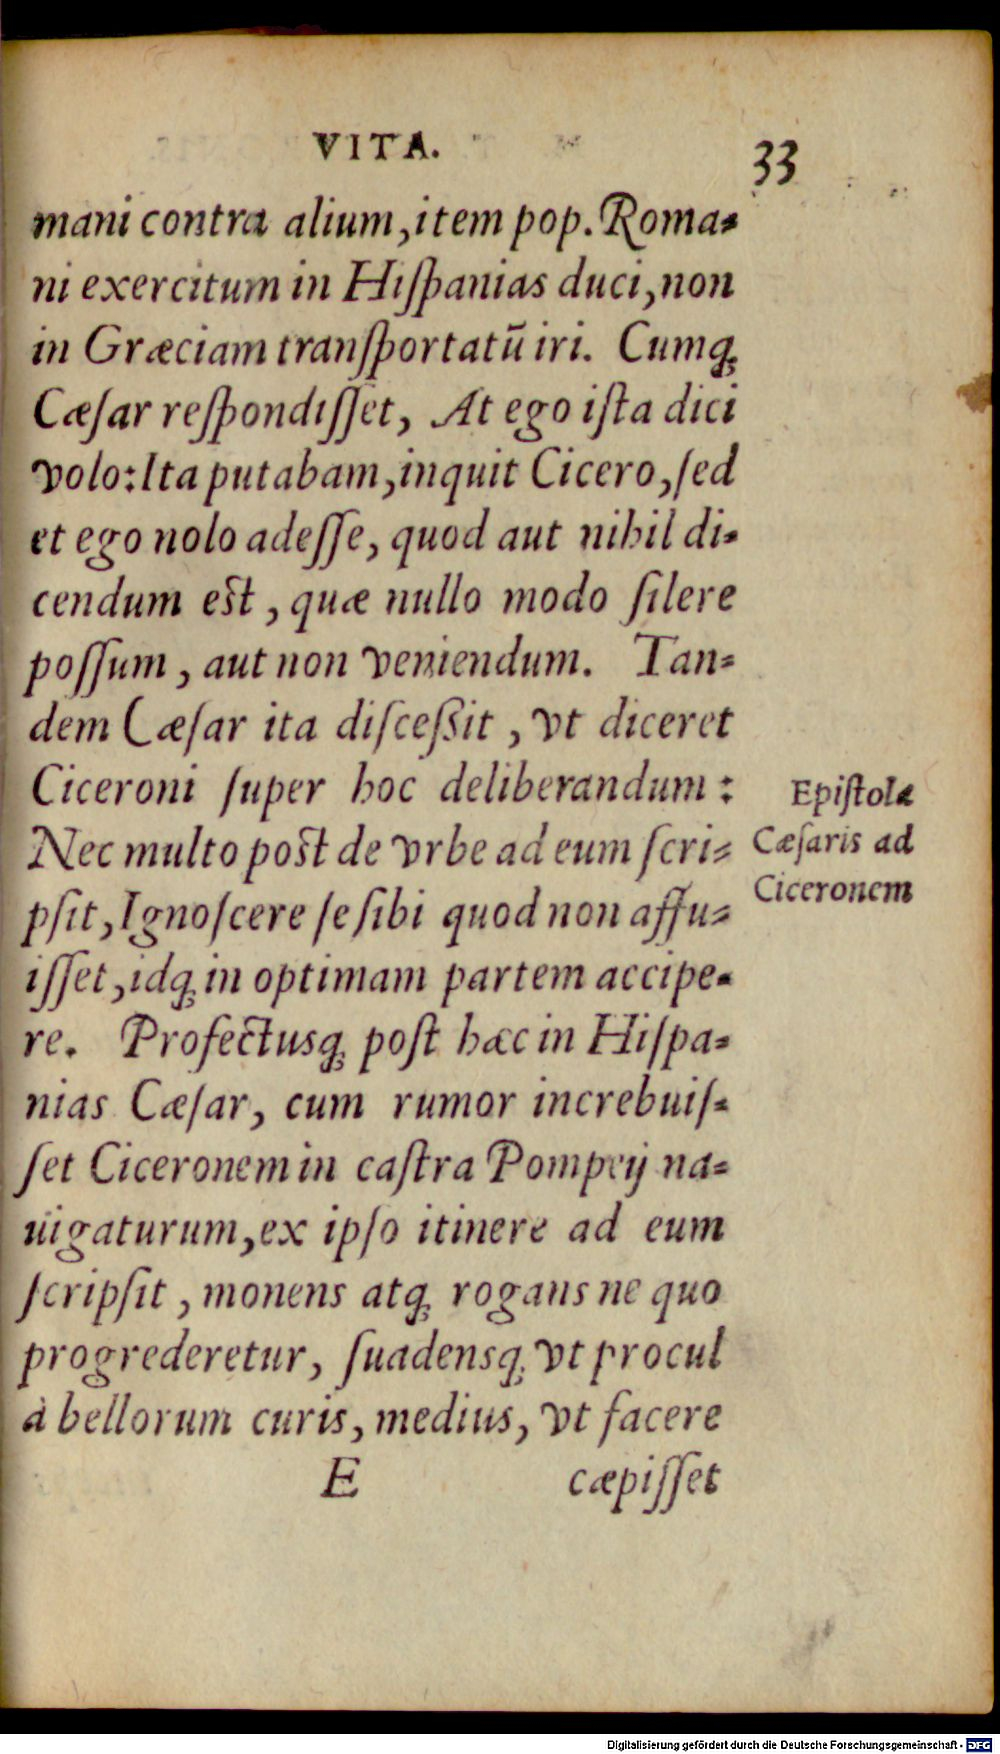 VITA. 33
mani contra alium, item pop. Roma-
ni exercitum in Hiſpanias duci, non
in Græciam tranſportatū iri. Cumq́;
Cæſar reſpondiſſet, At ego iſta dici
volo: Ita putabam, inquit Cicero, ſed
et ego nolo adeſſe, quod aut nihil di-
cendum eſt, quæ nullo modo ſilere
poſſum, aut non veniendum. Tan-
dem Cæſar ita diſceßit, vt diceret
Ciceroni ſuper hoc deliberandum:
Nec multo poſt de vrbe ad eum ſcri-
pſit, Ignoſcere ſe ſibi quod non affu-
iſſet, idq; in optimam partem accipe-
re. Profectusq; poſt hæc in Hiſpa-
nias Cæſar, cum rumor increbuiſ-
ſet Ciceronem in caſtra Pompeij na-
uigaturum, ex ipſo itinere ad eum
ſcripſit, monens atq; rogans ne quo
progrederetur, ſuadensq; vt procul
à bellorum curis, medius, vt facere
E cæpiſſet
Epiſtolæ
Cæſaris ad
Ciceronem
Digitalisierung gefördert durch die Deutsche Forschungsgemeinschaft - DFG